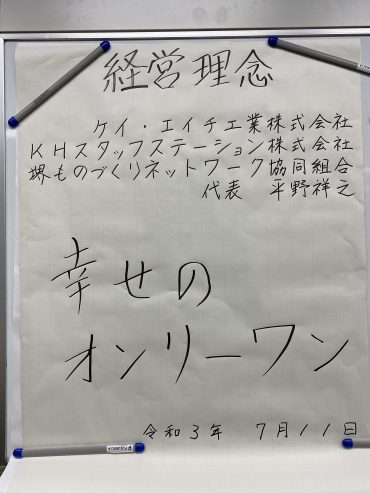 経営理念
ケイ・エイチ工業株式会社
KHスタッフステーション株式会社
堺ものづくりネットワーク協同組合
代表 平野祥之
幸せの
オンリーワン
令和3年 7月11日